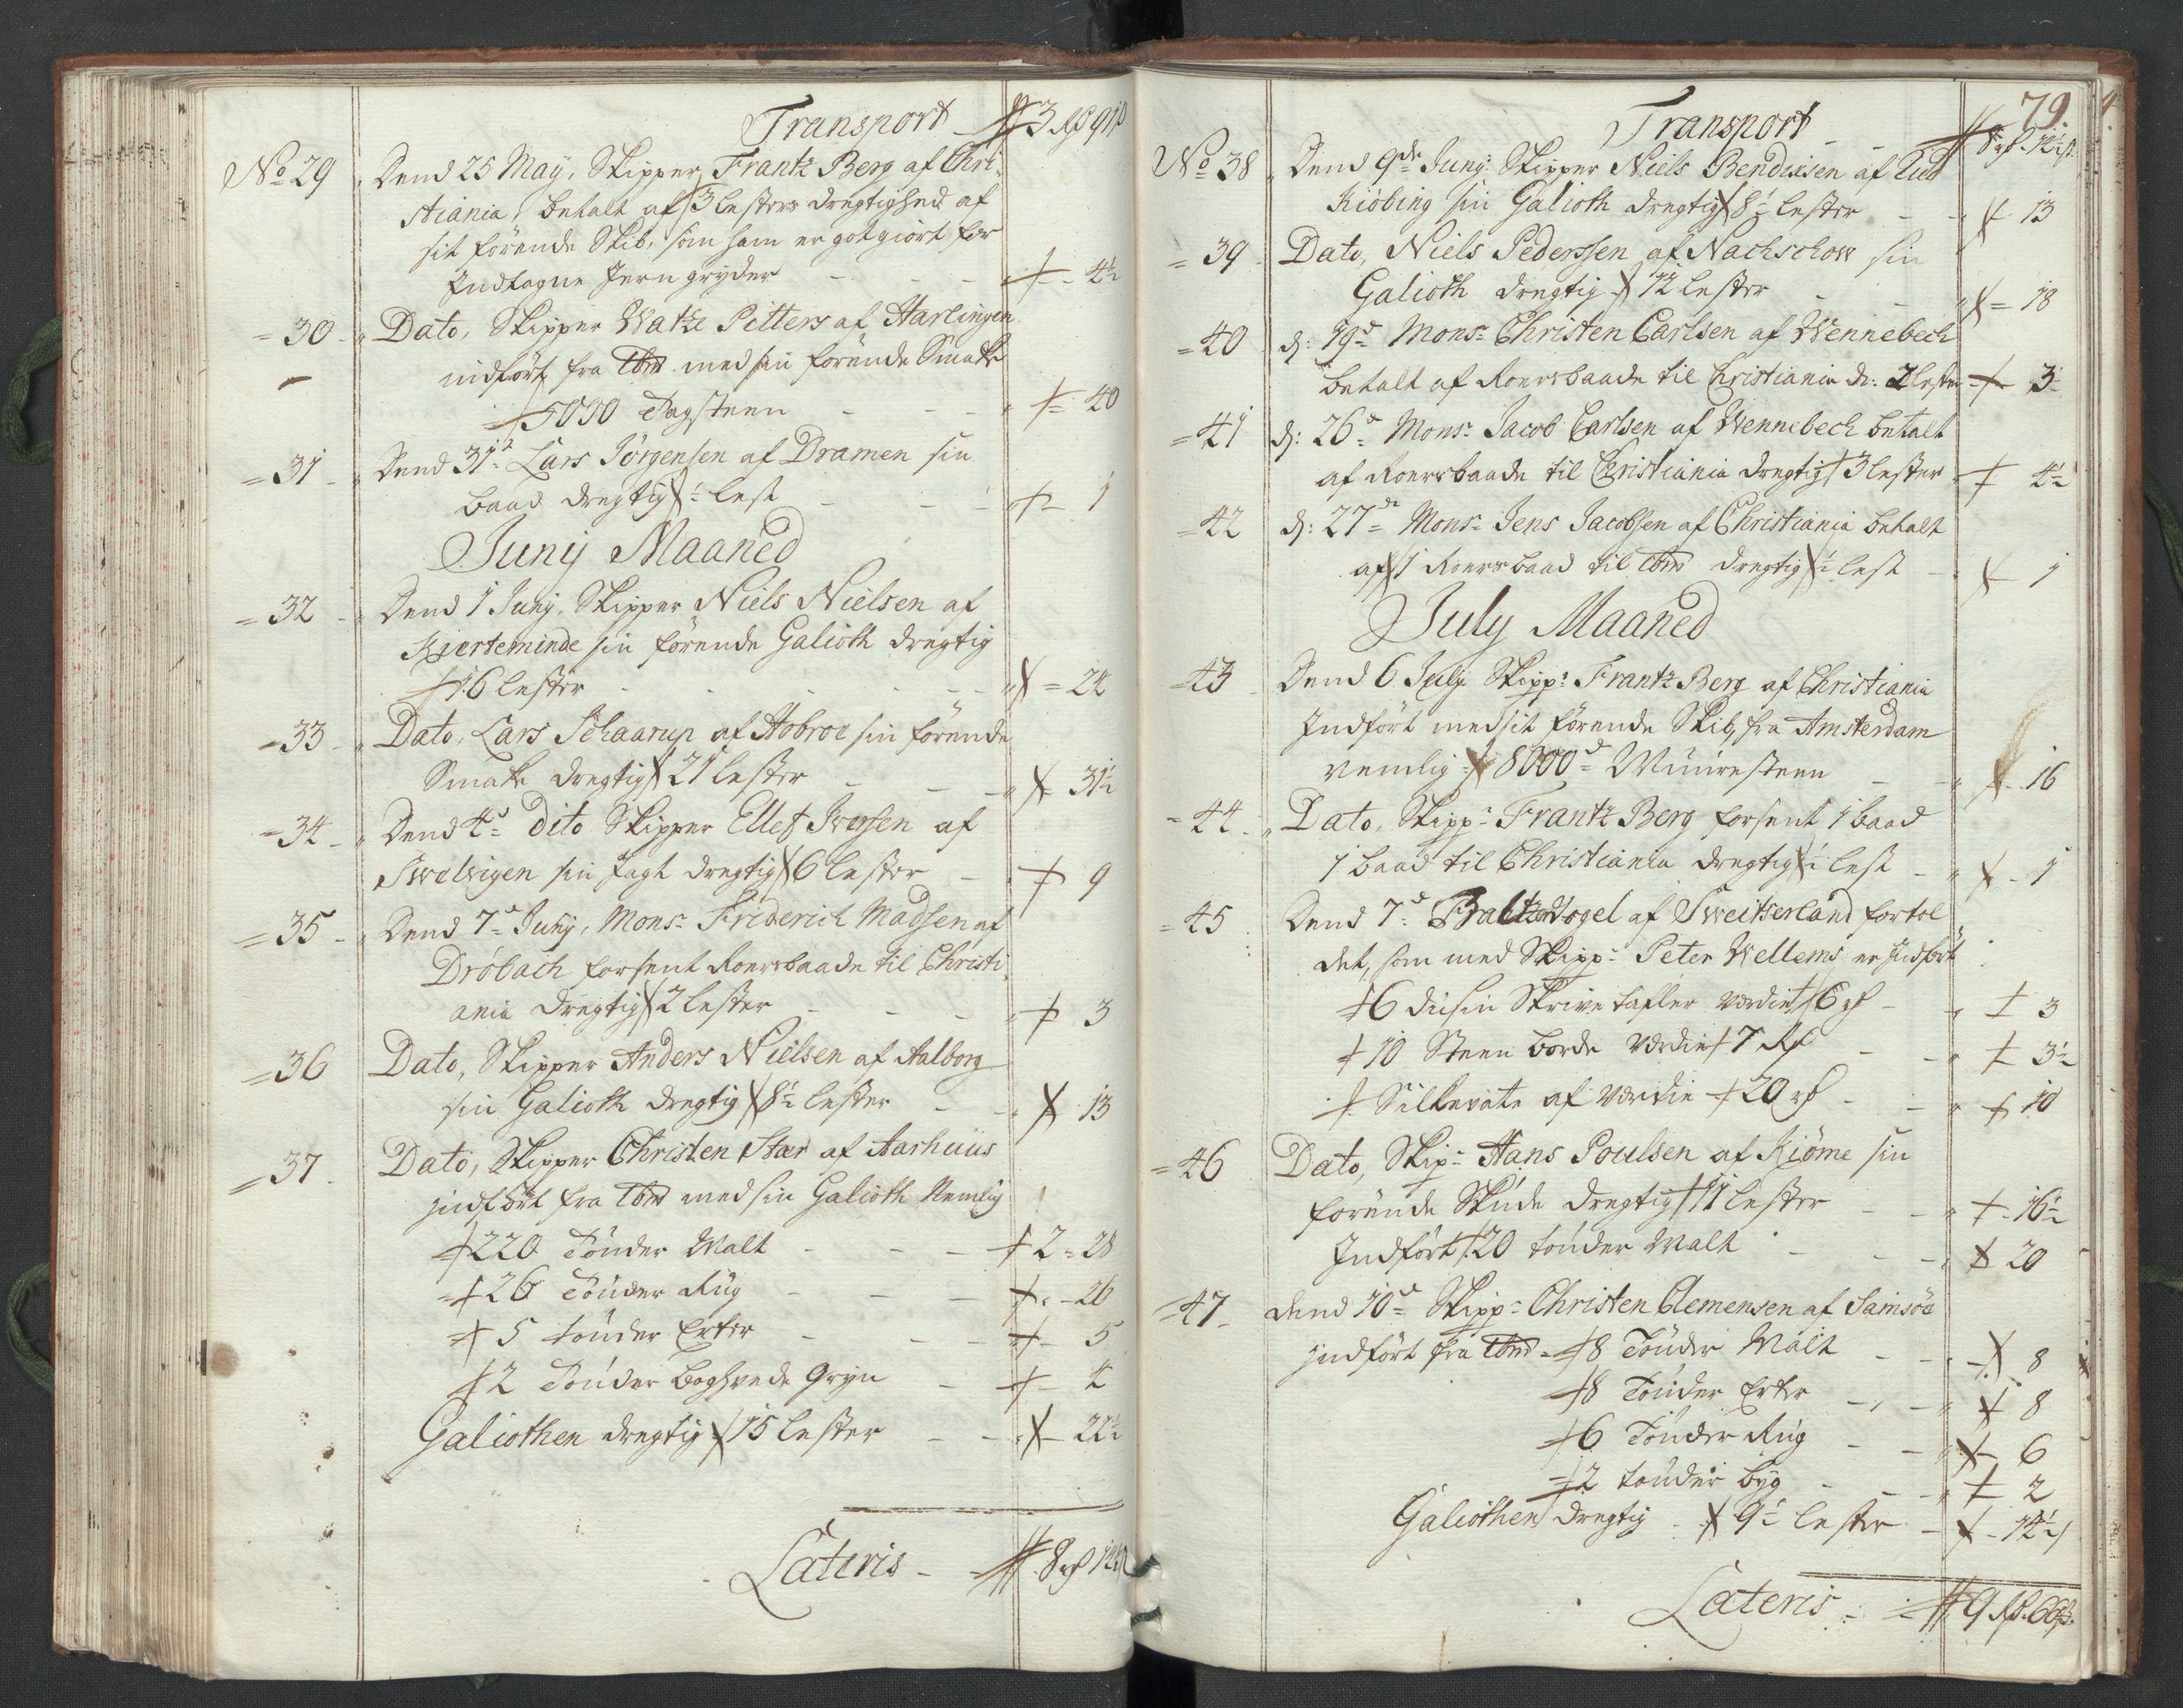 Transport 3 rd 91 s
No 29 Dend 25 May, Skipper Frantz Berg af Chri¬
stiania, betalt af 3 lesters dregtighed af
sit förende Skib, som ham er got giort for
Indtagne Jern gryder 4½
30 Dato, Skipper Watze Pitters af Harlingen
indfört fra med sin förende Smake
5000 Tagsteen 40
31 Dend 31d Lars Jörgensen af Dramen sin
baad dregtig ½ lest 1
Junij Maaned
32 Dend 1 Junij, Skipper Niels Nielsen af
Kierteminde sin förende Galioth dregtig
16 lester 24
33 Dato, Lars Schaarup af Hobroe sin förende
Smake dregtig 21 lester 31½
34 Dend 4d dito Skipper Ellef Iversen af
Svelvigen sin Jagt dregtig 6 lester 9
35 Dend 7d Junij, Monsr Friderich Madsen af
Dröbach forsent Roersbaade til Christi
ania dregtig 2 lester 3
36 Dato, Skipper Anders Nielsen af Aalborg
sin Galioth dregtig 8½ lester 13
37 Dato, Skipper Christen Stær af Aarhuus
indfört fra med sin Galioth Nemlig
220 Tönder Malt 2 = 28
26 Tönder Rug 26
5 tönder Erter 5
2 Tönder Boghvede Gryn 4
Galiothen dregtig 15 lester 22½
Lateris 8 rd
79.
Transport 8 rd
No 38 Dend 9de Junij Skipper Niels Bendixsen af Rud
Kiöbing sin Galioth dregtig 8½ lester 13
39 Dato, Niels Pederssen af Nachschow sin
Galioth dregtig 12 lester 18
40 d: 19d Monsr Christen Carlsen af Wennebech
betalt af Roersbaade til Christiania dr: 2 lester 3
41 d: 26d Monsr Jacob Carlsen af Wennebech betalt
af Roersbaade til Christiania dregtig 3 lester 4½
42 d: 27de Monsr Jens Jacobsen af Christiania betalt
af 1 Roersbaad til dregtig ½ lest 1
July Maaned
43 Dend 6 July Skippr Frantz Berg af Christiania
Indfört med sit förende Skib, fra Amsterdam
nemlig 8000d Muuresteen 16
44 Dato, Skippr Frantz Berg forsent 1 baad
1 baad til Christiania dregtig ½ lest 1
45 Dend 7d Vogel af Sweitserland fortol
det, som med Skippr Peter Wellems er Indfört
6 dusin Skrive tafler værdie 6 rd 3
10 Steen borde værdie 7 Rd 3½
af værdie 20 rd 10
46 Dato, Skipr Hans Poulsen af Kiöme sin
förende Skude dregtig 11 lester 16½
Indfört 20 tönder Malt 20
47 dend 10de Skippr Christen Clemensen af Samsöe
indfört fra 8 Tönder Malt 8
8 Tönder Erter 8
6 Tönder Rug 6
2 tönder byg 2
Galiothen dregtig 9½ lester 14½
Lateris 9 Rd